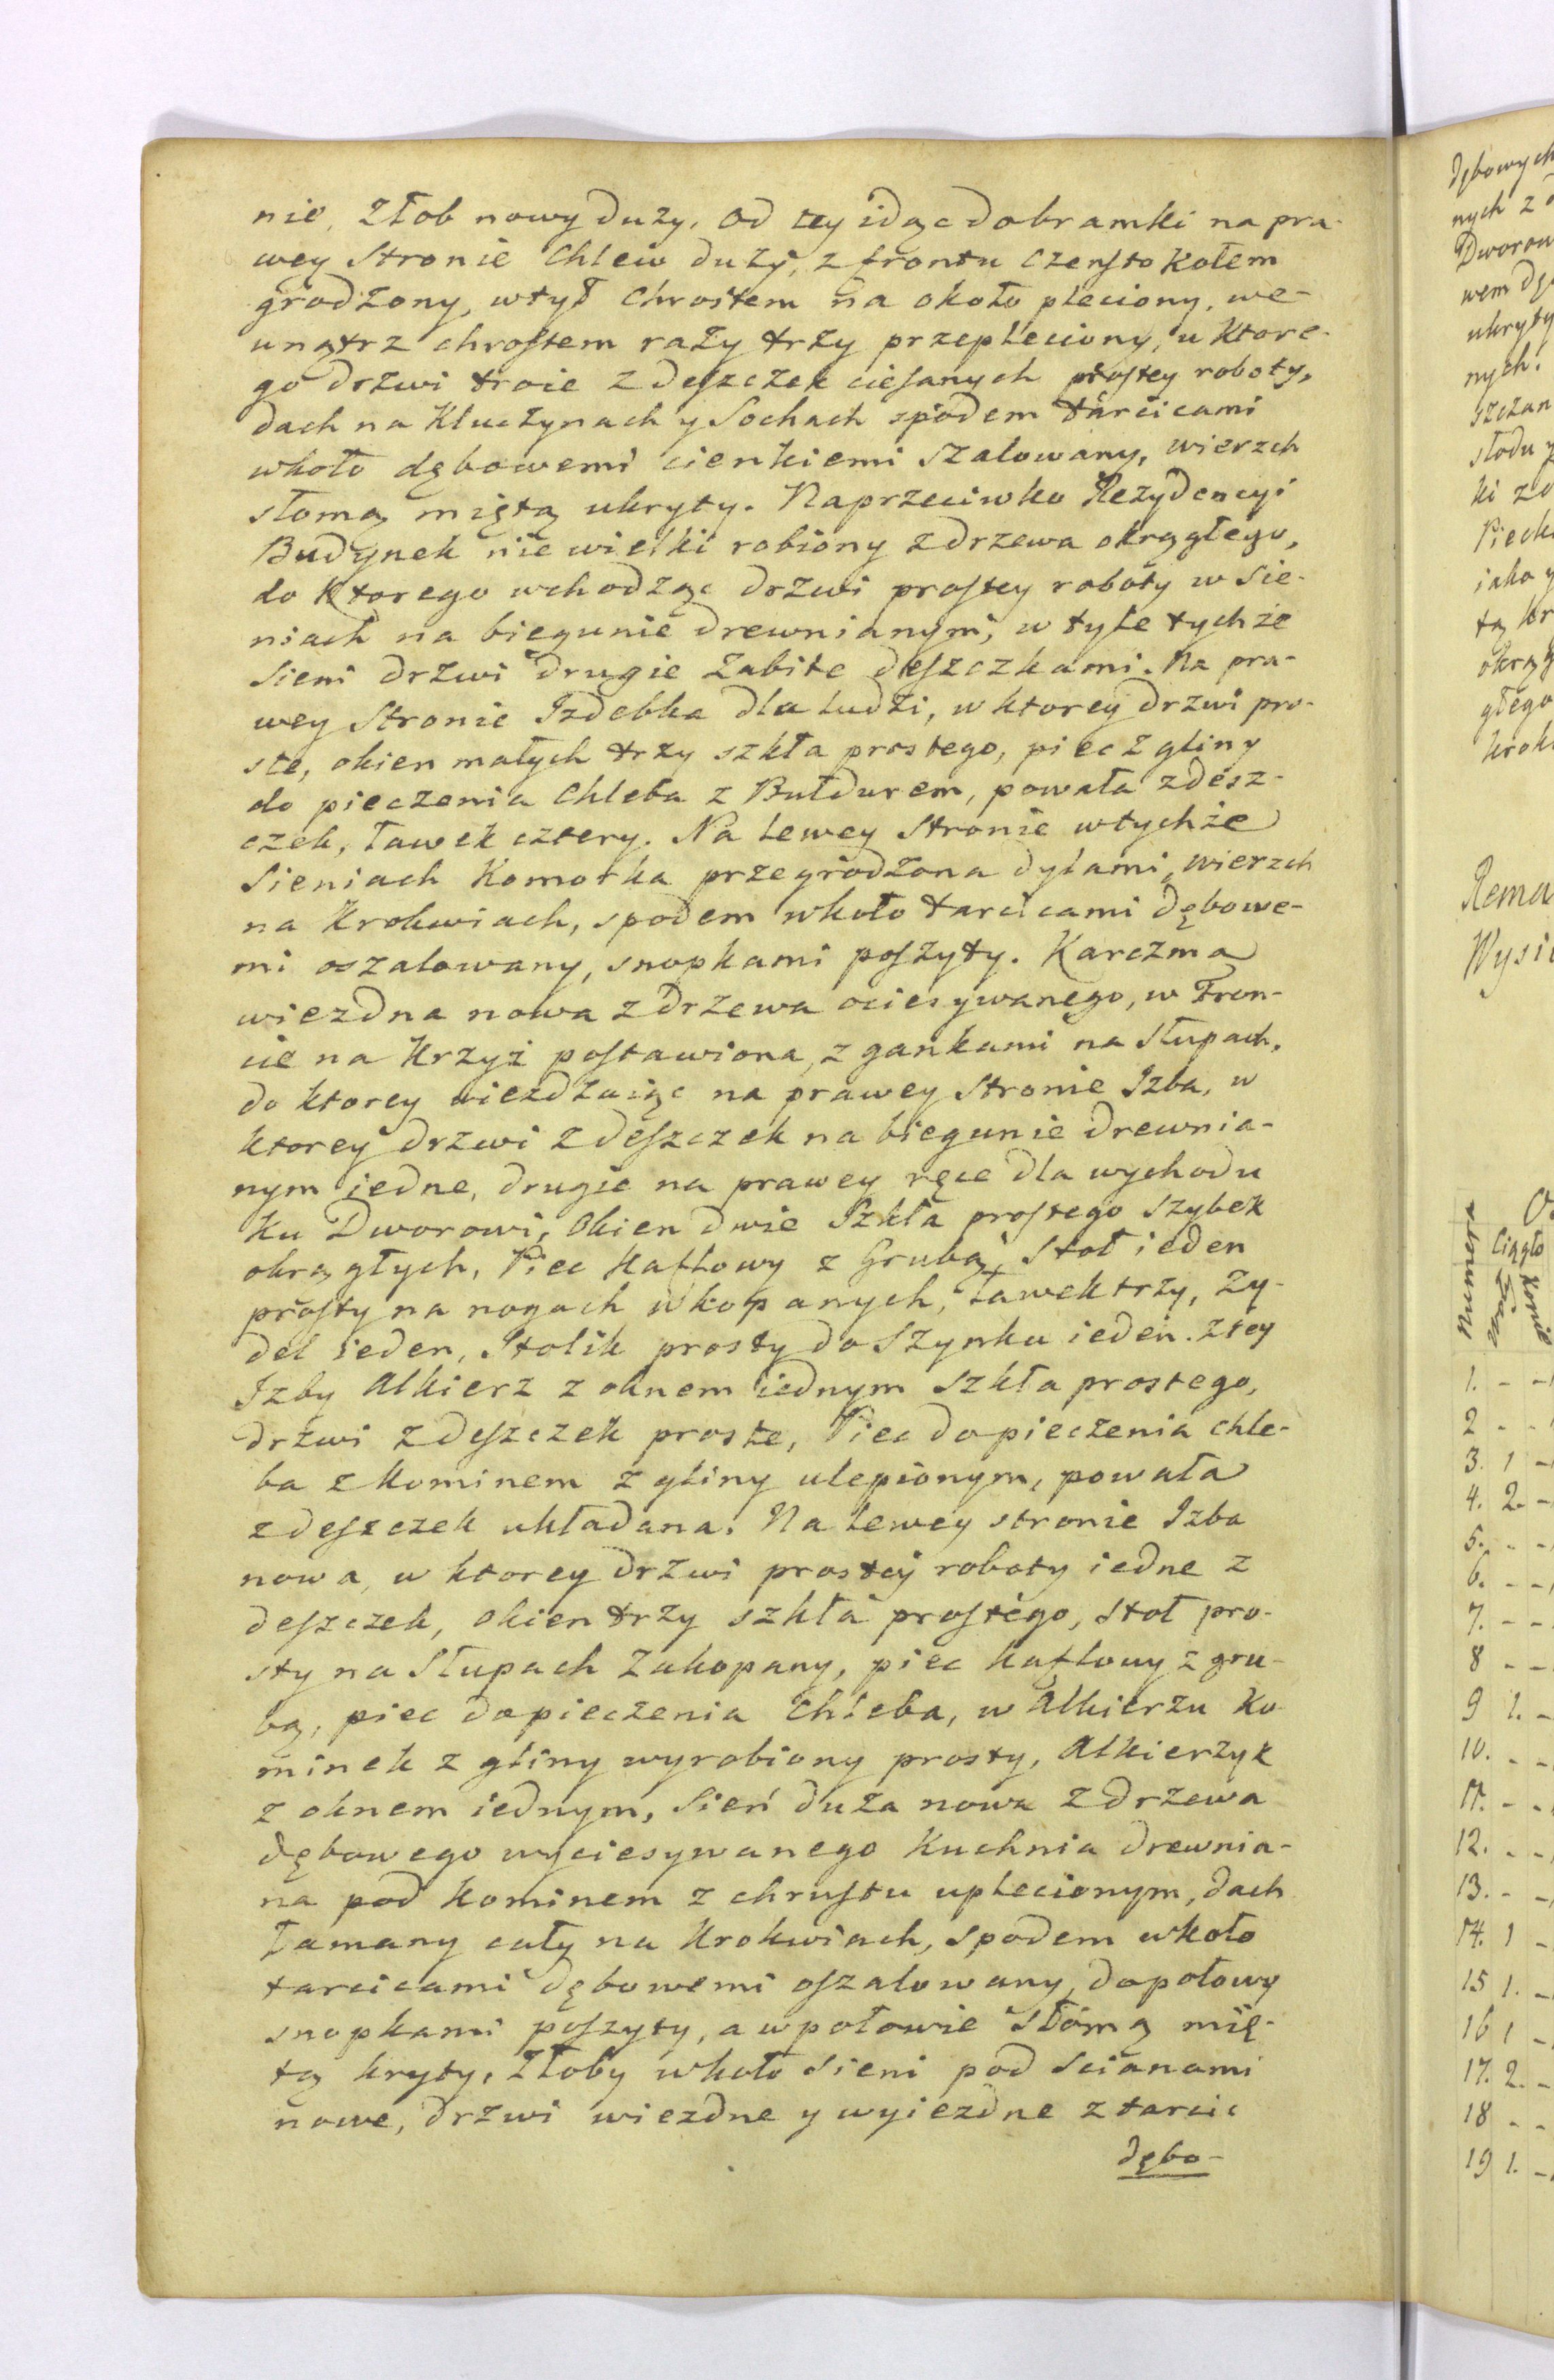 nie, Złob nowy duzy. Od tey idąc do bramki na pra-
wey Stronie Chlew duży, z frontu Czenstokołem
grodzony, wtył Chrostem na około pleciony, we-
unątrz chrostem razy trzy przepleciony, u ktore-
go drzwi troie z deszczek ciesanych prostey roboty,
dach na Kluczynach y Sochach spodem tarcicami
wkoło dębowemi cienkiemi szalowany, wierzch
słomą miętą ukryty. Naprzeciwko Rezydencyi
Budynek niewielki robiony z drzewa okrągłego,
do ktorego wchodząc drzwi prostey roboty w Sie-
niach na biegunie drewnianym, w tyle tychże
Sieni drzwi drugie Zabite deszczkami. Na pra-
wey Stronie Izdebka dla ludzi, w ktorey drzwi pro-
ste, okien małych trzy szkła prostego, piec z gliny
do pieczenia Chleba z Bułdurem, powała z desz-
czek, ławek cztery. Na lewey Stronie w tychże
Sieniach Komorka przegrodzona dylami, wierzch
na Krokwiach, spodem wkoło tarcicami dębowe-
mi oszalowany, snopkami poszyty. Karczma
wiezdna nowa z drzewa ociesywanego, w Fron-
cie na Krzyż postawiona, z gankami na Słupach,
do ktorey wiezdzaiąc na prawey Stronie Izba, w
ktorey drzwi z deszczek na biegunie drewnia-
nym iedne, drugie na prawey ręce dla wychodu
ku Dworowi, Okien dwie Szkła prostego szybek
okrągłych, Piec Kaflowy z Grubą, Stoł ieden
prosty na nogach wkopanych, ławek trzy, Zy-
del ieden, Stolik prosty do Szynku ieden. Z tey
Izby Alkierz z oknem iednym szkła prostego,
drzwi z deszczek proste, Piec do pieczenia chle-
ba z kominem z gliny ulepionym, powała
z deszczek układana. Na lewey stronie Izba
nowa, w ktorey drzwi prostey roboty iedne z
deszczek, okien trzy szkła prostego, stoł pro-
sty na Słupach Zakopany, piec kaflowy z gru-
bą, piec do pieczenia Chleba, w Alkierzu Ko-
minek z gliny wyrobiony prosty, Alkierzyk
z oknem iednym, Sień duża nowa z drzewa
dębowego wyciesywanego Kuchnia drewnia-
na pod kominem z chrustu uplecionym, dach
łamany cały na Krokwiach, spodem wkoło
tarcicami dębowemi oszalowany, do połowy
snopkami poszyty, a w połowie słomą mię-
tą kryty, Złoby wkoło Sieni pod Scianami
nowe, drzwi wiezdne y wyiezdne z tarcic
dębo-
dębowych
nych z
ukryty
nych.
iako y
głego
Numera
Ciągło
konie
1. - -
2 - -
3. 1 -
4. 2. -
5. - -
6. - -
7. - -
8 - -
9 1. -
10. - -
11. - -
12. - -
13. - -
14. 1 -
15 1. -
16 1 -
17. 2. -
18 - -
19 1. -